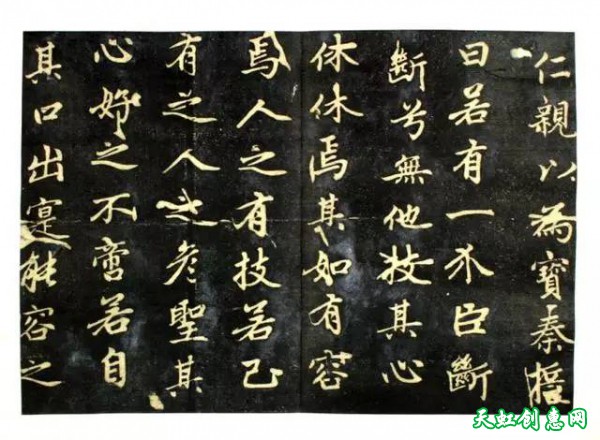 仁親以為寶秦誓
曰若有一介臣斷
斷兮無他技其心
休休焉其如有容
焉人之有技若己
有之人之彦聖其
心好之不啻若自
其口出寔能容之
天虹创惠网